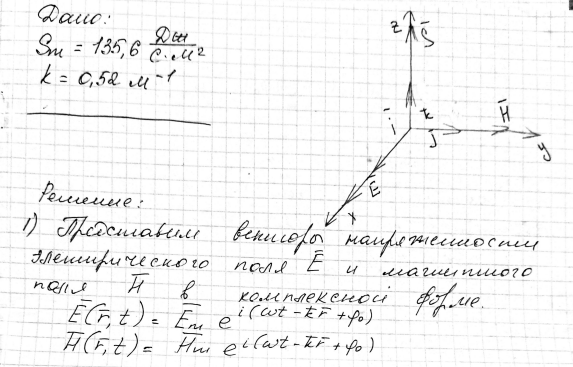 Дано:
Sm = 135,6 Дж/(с·м²)
k = 0,52 м⁻¹
z
S̄
ī
k̄
j
H̄
y
Ē
x
Решение:
1) Представим векторы напряженности
электрического поля Ē и магнитного
поля H̄ в комплексной форме.
Ē(r̄, t) = Ēm e^{i(ωt - k̄r̄ + φ₀)}
H̄(r̄, t) = H̄m e^{i(ωt - k̄r̄ + φ₀)}